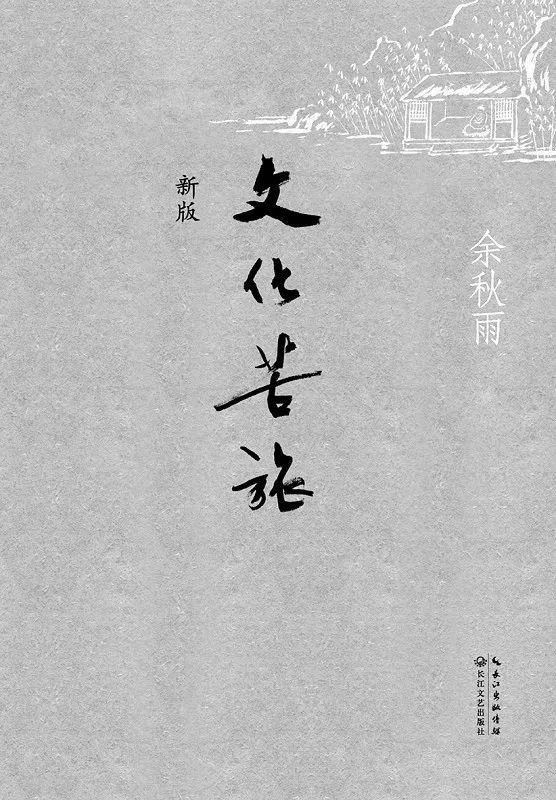 新版
文化苦旅
余秋雨
长江文艺出版社
长江出版传媒